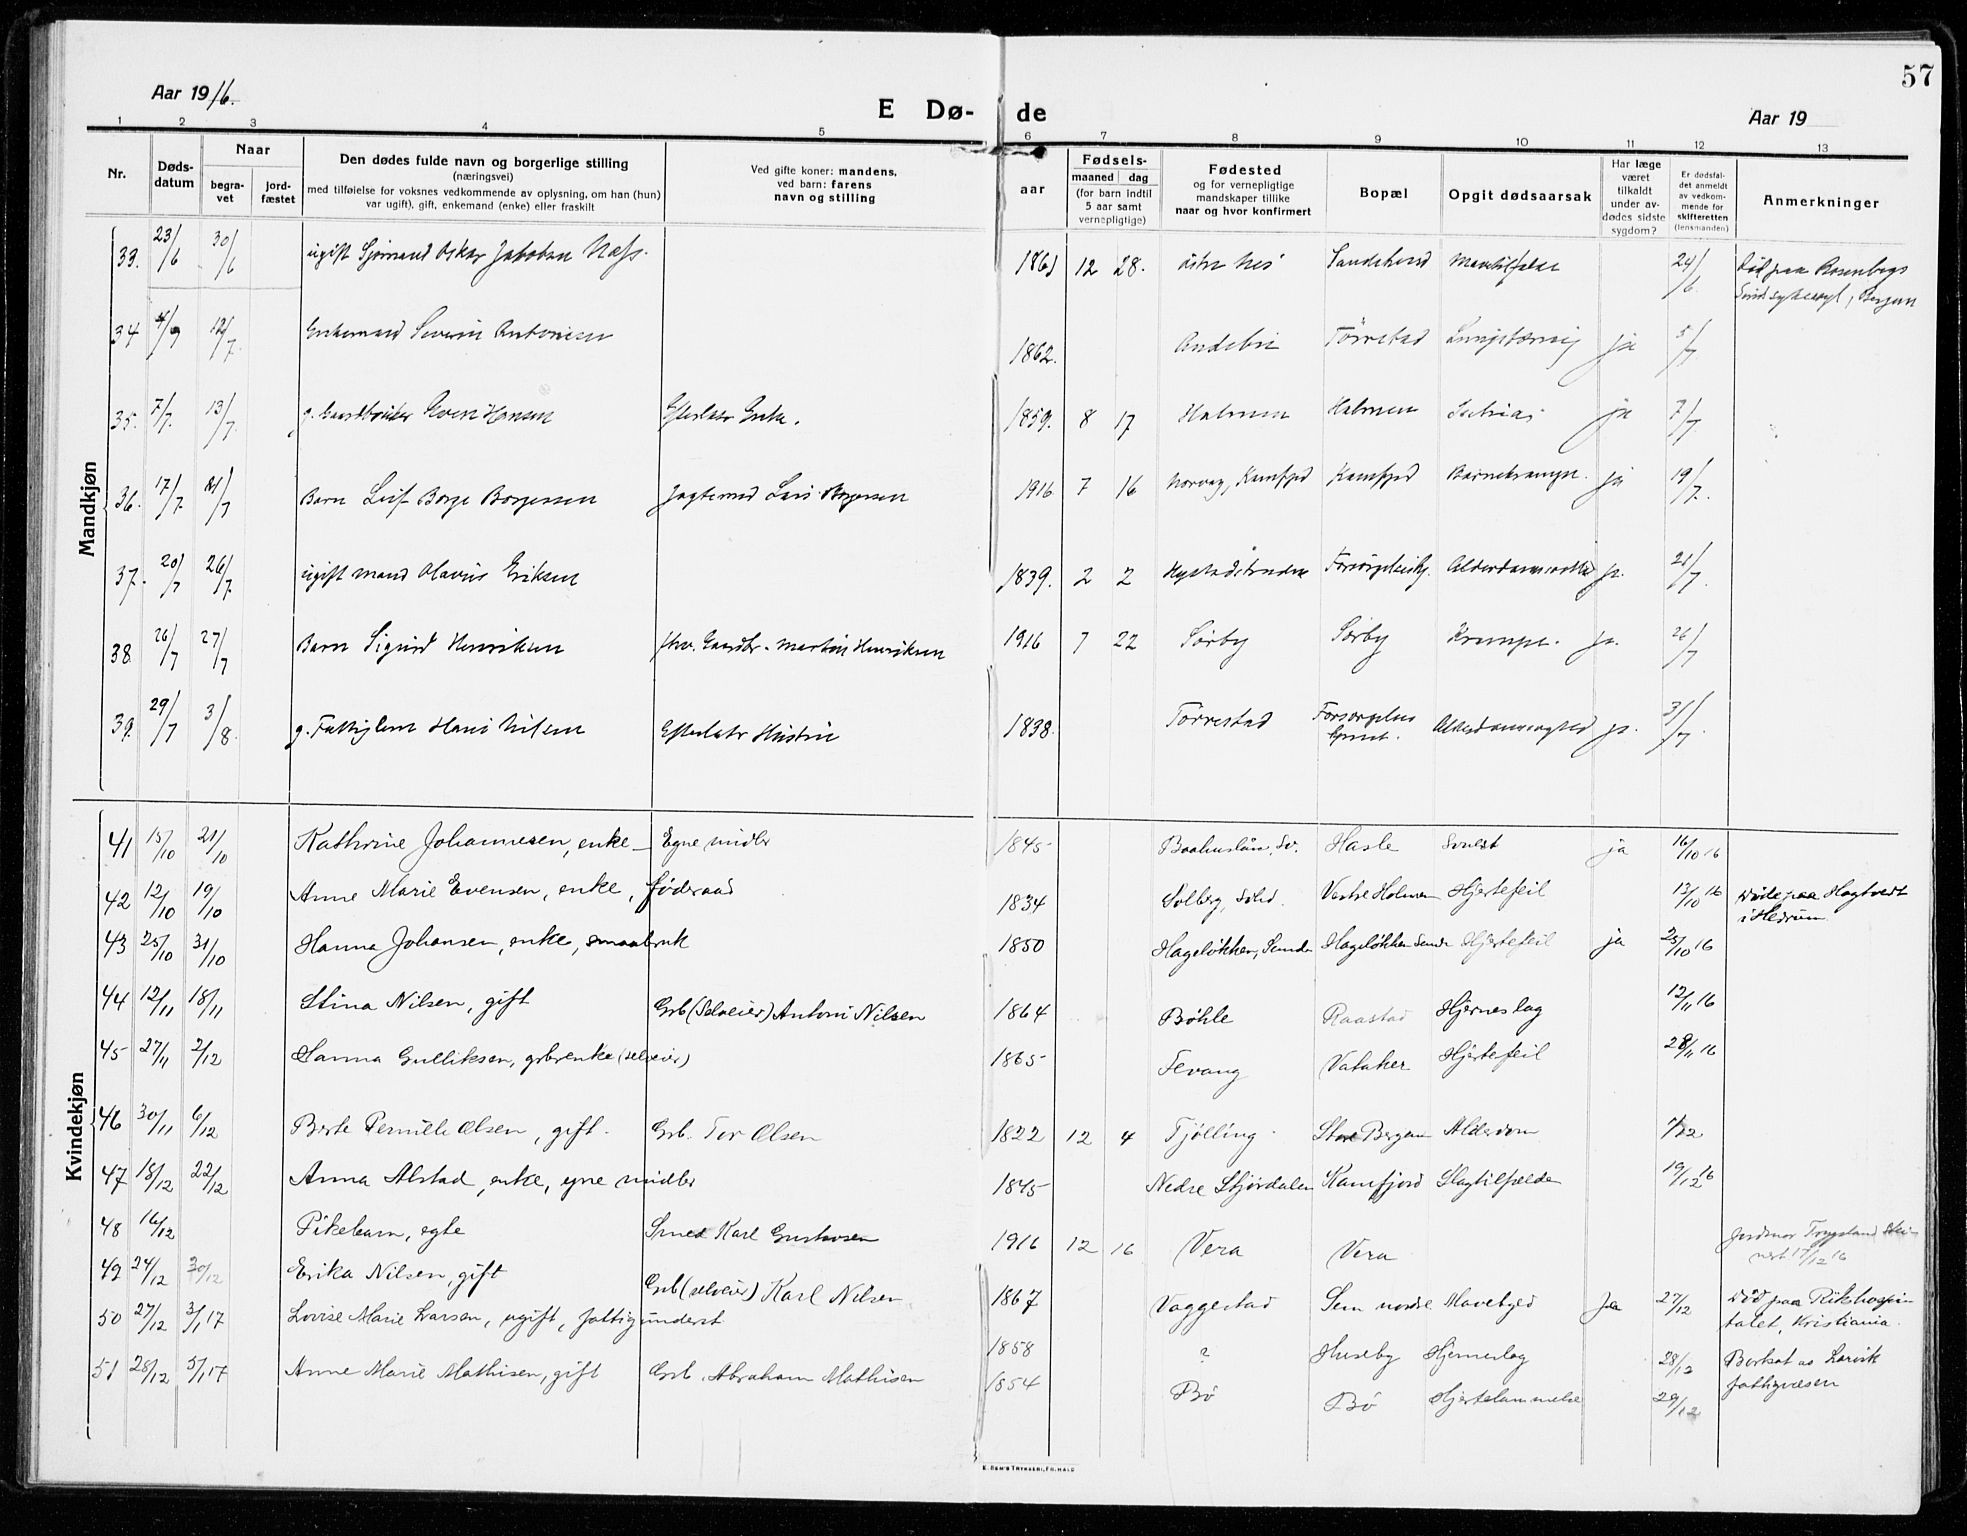 57
Aar 1916.
E Dø- de
Aar 19
1 2 3 4 5 6 7 8 9 10 11 12 13
Nr.
Døds-
datum
Naar
begra-
vet
jord-
fæstet
Den dødes fulde navn og borgerlige stilling
(næringsvei)
med tilføielse for voksnes vedkommende av oplysning, om han (hun)
var ugift), gift, enkemand (enke) eller fraskilt
Ved gifte koner: mandens,
ved barn: farens
navn og stilling
aar
Fødsels-
maaned dag
(for barn indtil
5 aar samt
vernepligtige)
Fødested
og for vernepligtige
mandskaper tillike
naar og hvor konfirmert
Bopæl
Opgit dødsaarsak
Har læge
været
tilkaldt
under av-
dødes sidste
sygdom?
Er dødsfal-
det anmeldt
av vedkom-
mende for
skifteretten
(lensmanden)
Anmerkninger
Mandkjøn
33. 23/6 30/6 ugift Sjømand Oskar Jakobsen Næss. 1861 12 28. Østre Nes Sandeherred 24/6 Død paa Rosenbergs
Sindssykeasyl, Bergen
34 12/7. Enkemand Severin Antonisen 1862. Andebu Törrestad ja 5/7
35. 7/7. 13/7. g. Gaardbruker Even Hansen Efterlater Enke. 1859. 8 17 Holmen Holmen ja 7/7.
36. 17/7. 21/7 Barn Leif Borge Borgersen Borgersen 1916 7 16 Norveg, Kamfjord Kamfjord Barnekrampe. ja 19/7.
37. 20/7 26/7. ugift mand Olavus Eriksen 1839. 2 2 Nystadstranden ja. 21/7.
38 26/7 27/7 Barn Sigurd Henriksen Gaardbr. Martin Henriksen 1916 7 22 Sørby Sørby Krampe. ja. 26/7
39. 29/7 3/8. g. Fattiglem Hans Nilsen Efterlater Hustru 1838. Törrestad Forsørgelses Alderdomssvaghed ja. 31/7.
Kvindekjøn
41 15/10 21/10 Kathrine Johannesen, enke – Egne midler 1845 Baahuslän, Sv. Hasle ja 16/10 16
42 12/10 19/10 Anne Marie Evensen, enke, føderaad 1834 Solberg, Vestre Holmen Hjertefeil 13/10 16 Døde paa Hagtvedt
i Hedrum.
43 25/10 31/10 Hanna Johansen, enke, smaabruk 1850 Hageløkken, Sande Hageløkken Sande Hjertefeil ja 25/10 16
44 12/11 18/11 Stina Nilsen, gift Grb (Selveier) Antoni Nilsen 1864 Bøhle Raastad Hjerneslag 12/11 16
45 27/11 2/12 Sanna Gulliksen, grbrenke (selveier) 1865 Fevang Vataker Hjertefeil 28/11 16
46 30/11 6/12 Berte Pernille Olsen, gift. Grb. Tor Olsen 1822 12 4 Tjølling. Store Bergan Alderdom 1/12
47 18/12 22/12 Anna Alstad, enke, egne midler 1845 Nedre Stjørdalen Kamfjord Slagtilfælde 19/12 16
48 16/12 Pikebarn, egte Smed Karl Gustavsen 1916 12 16 Vera Vera Jordmor Trygstad
17/12 16
49 24/12 30/12 Erika Nilsen, gift Grb (selveier) Karl Nilsen 1867 Vaggestad Sem nordre Mavebyld Ja 27/12 Død paa Rikshospi-
talet, Kristiania.
50 27/12 3/1 17 Lovise Marie Larsen, ugift, fattigunderst 1858 ? Huseby Hjerneslag 28/12 Bortsat av Larvik
fattigvæsen
51 28/12 5/1 17 Anne Marie Mathisen, gift Grb. Abraham Mathisen 1854 Bø Bø Hjertelammelse 29/12
E. SEM'S TRYKKERI, FR.HALD